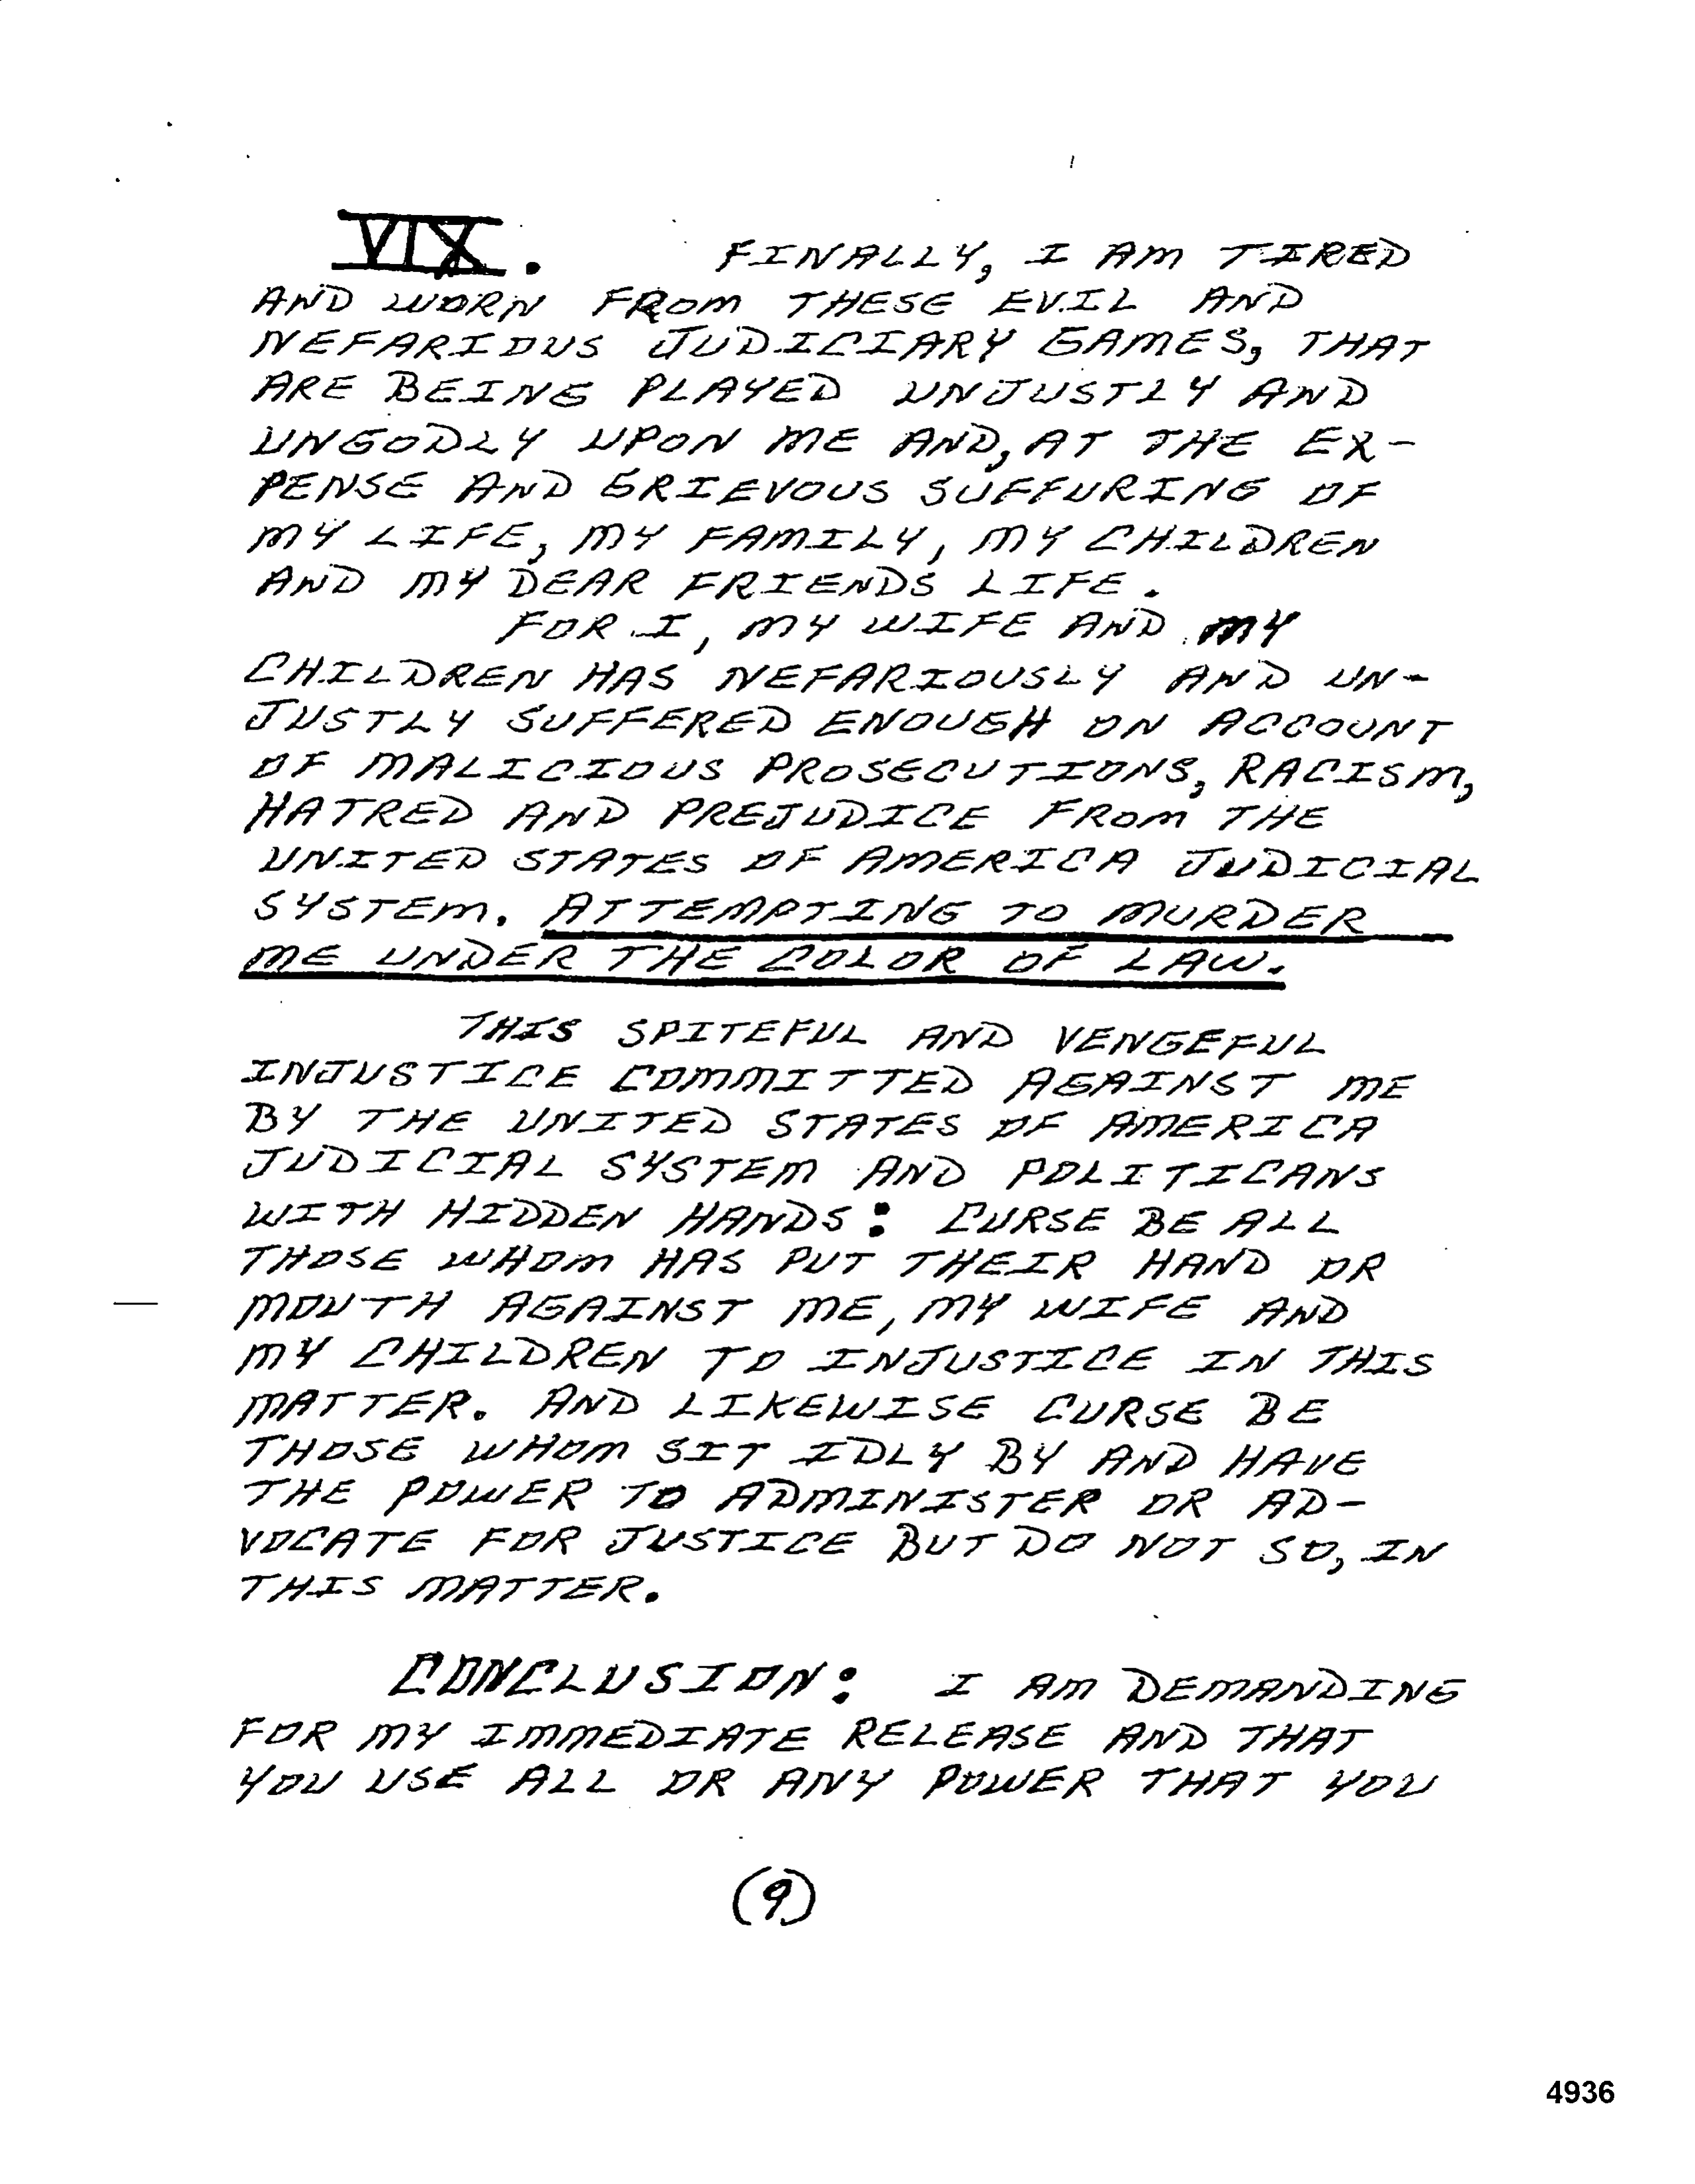 VIX. FINALLY, I AM TIRED
AND WORN FROM THESE EVIL AND
NEFARIOUS JUDICIARY GAMES, THAT
ARE BEING PLAYED UNJUSTLY AND
UNGODLY UPON ME AND, AT THE EX-
PENSE AND GRIEVOUS SUFFURING OF
MY LIFE, MY FAMILY, MY CHILDREN
AND MY DEAR FRIENDS LIFE.
FOR I, MY WIFE AND MY
CHILDREN HAS NEFARIOUSLY AND UN-
JUSTLY SUFFERED ENOUGH ON ACCOUNT
OF MALICIOUS PROSECUTIONS, RACISM,
HATRED AND PREJUDICE FROM THE
UNITED STATES OF AMERICA JUDICIAL
SYSTEM. ATTEMPTING TO MURDER
ME UNDER THE COLOR OF LAW.
THIS SPITEFUL AND VENGEFUL
INJUSTICE COMMITTED AGAINST ME
BY THE UNITED STATES OF AMERICA
JUDICIAL SYSTEM AND POLITICANS
WITH HIDDEN HANDS: CURSE BE ALL
THOSE WHOM HAS PUT THEIR HAND OR
MOUTH AGAINST ME, MY WIFE AND
MY CHILDREN TO INJUSTICE IN THIS
MATTER. AND LIKEWISE CURSE BE
THOSE WHOM SIT IDLY BY AND HAVE
THE POWER TO ADMINISTER OR AD-
VOCATE FOR JUSTICE BUT DO NOT SO, IN
THIS MATTER.
CONCLUSION: I AM DEMANDING
FOR MY IMMEDIATE RELEASE AND THAT
YOU USE ALL OR ANY POWER THAT YOU
(9)
4936